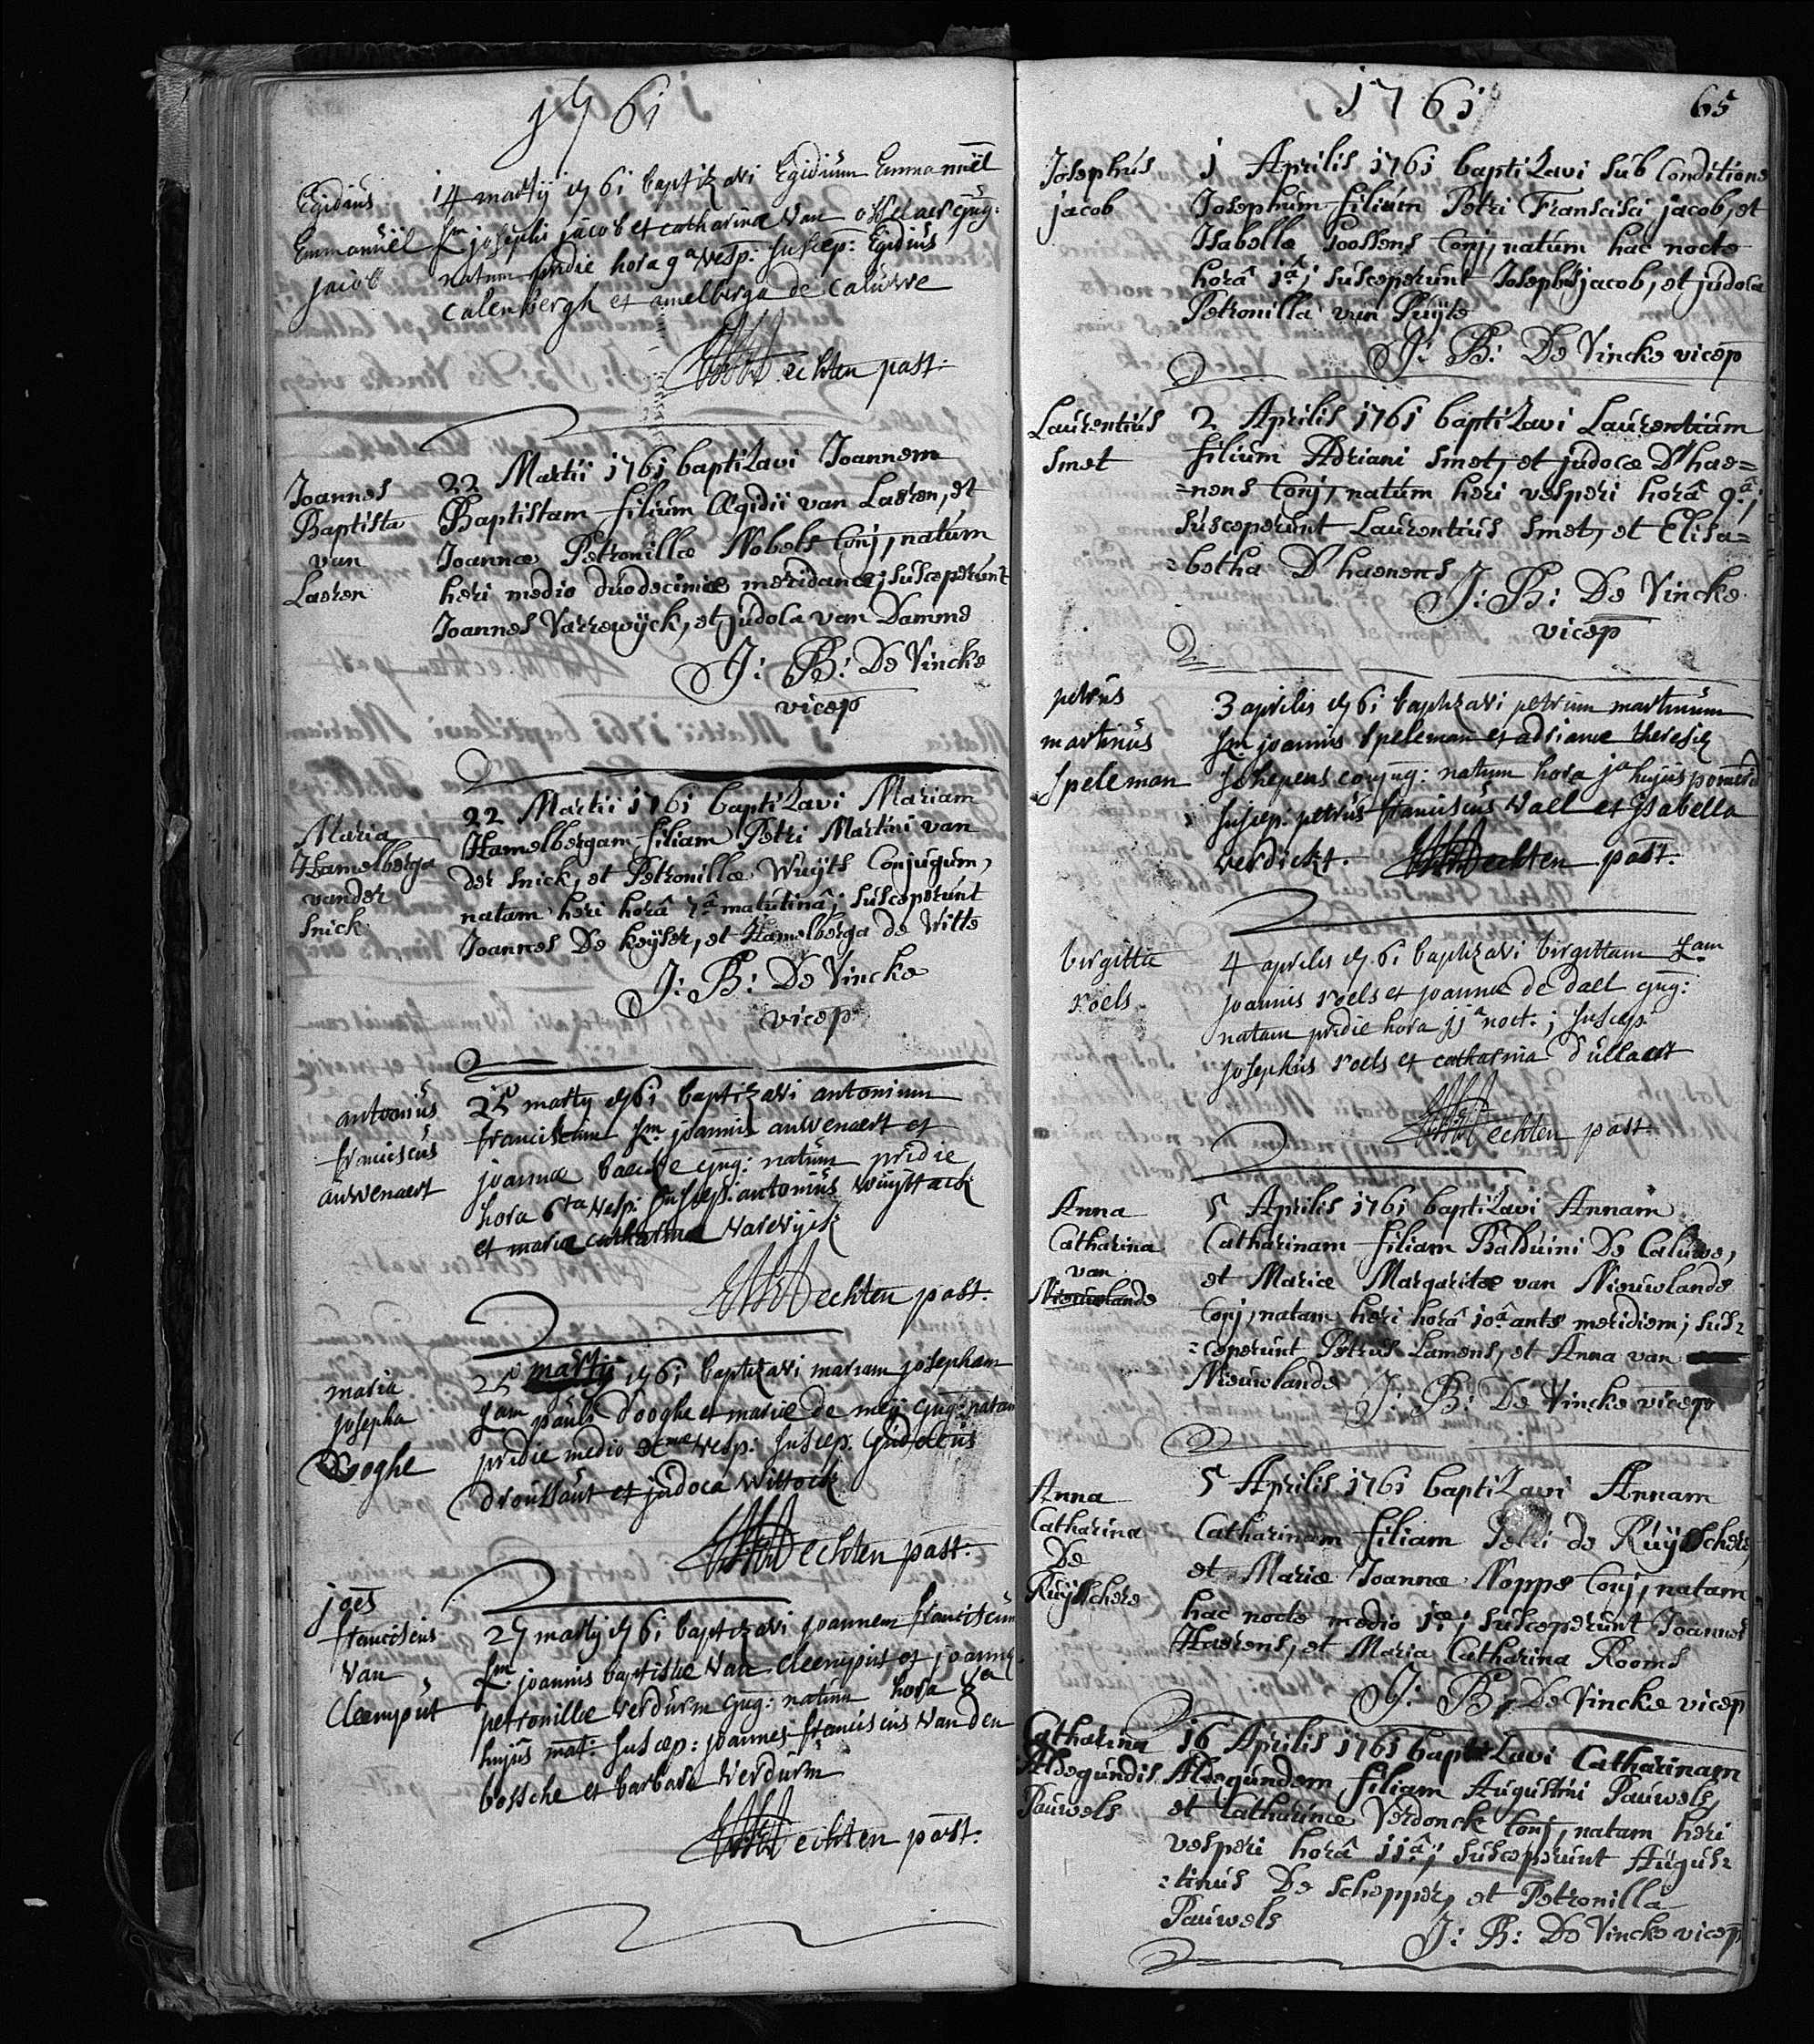 1761
Egidius
Emmanuel
Jacob
14 martij 1761 baptizavi Egidium Emmanuel
fm josephi jacob et catharinæ van osselaer cjug:
natum pridie hora 9a vesp: suscep: Egidius
Calenbergh et amelberga de Caluwe
echten past:
Joannes
Baptista
van
Laeren
22 Martii 1761 baptizavi Joannem
Baptistam filium Ægidii van Laeren, et
Joannæ Petronillæ Nobels Conj, natum
heri medio duodecimæ meridanæ; susceperunt
Joannes Varrewijck, et Judoca van Damme
J: B: De Vincke
vicep
Maria
Hamelberga
vander
Snick
22 Martii 1761 baptizavi Mariam
Hamelbergam filiam Petri Martini van
der Snick, et Petronillæ Wuyts Conjugum,
natam heri horâ 7â matutinâ; susceperunt
Joannes De Keyser, et Hamelberga de Witte
J: B: De Vincke
vicep
antonius
franciscus
auwenaert
25 martij 1761 baptizavi antonium
franciscum fm joannis auwenaert et
joannæ baecke cjug: natum pridie
hora 6ta vesp: suscep: antonius wuijttack
et maria catharina varewijck
echten past:
maria
josepha
D'ooghe
25 martij 1761 baptizavi mariam josepham
fam pauli d'ooghe et mariæ de meij cjug: natam
pridie medio vesp: suscep: Judocus
droussaut et judoca wittock
echten past:
joēs
franciscus
Van
Cleemput
27 martij 1761 baptizavi joannem franciscum
fm joannis baptistæ van Cleemput et joannæ
petronillæ verdurm cjug: natum hora 8a
hujus mat: suscep: joannes franciscus vanden
bossche et barbara verdurm
echten past:
1761
65
Josephus
jacob
1 Aprilis 1761 baptizavi sub Conditione
Josephum filium Petri Francisci jacob, et
Isabellæ Goossens Conj, natum hac nocte
horâ 1â; susceperunt Josephus jacob, et judoca
Petronilla van Puijte
J: B: De Vincke vicep
Laurentius
Smet
2 Aprilis 1761 baptizavi Laurentium
filium Adriani Smet, et judocæ D'hae=
=nens Conj, natum heri vesperi horâ 9â;
susceperunt Laurentius Smet, et Elisa=
=betha D'haenens
J: B: De Vincke
vicep
petrus
martinus
Speleman
3 aprilis 1761 baptizavi petrum martinum
fm joannis Speleman et adrianæ theresiæ
Schepens conjug: natum hora 1a hujus pomerid
suscep: petrus franciscus Wall et isabella
verdickt. echten past:
birgitta
roels
4 aprilis 1761 baptizavi birgittam fam
joannis roels et joannæ de dael cjug:
natam pridie hora 11a noct.; suscep
josephus roels et catharina d'ullaert
echten past
Anna
Catharina
van
Nieuwlande
5 Aprilis 1761 baptizavi Annam
Catharinam filiam Balduini De Caluwe,
et Mariæ Margaritæ van Nieuwlande
Conj, natam heri horâ 10â ante meridiem; sus=
=ceperunt Petrus Lamens, et Anna van
Nieuwlande J: B: De Vincke vicep
Anna
Catharina
De
Ruijschere
5 Aprilis 1761 baptizavi Annam
Catharinam filiam Petri de Ruijschere,
et Mariæ Joannæ Noppe Conj, natam
hac nocte medio 1æ; susceperunt Joannes
Haerens, et Maria Catharina Rooms
J: B: De Vincke vicep
Catharina
Aldegundis
Pauwels
16 Aprilis 1761 baptizavi Catharinam
Aldegundem filiam Augustini Pauwels,
et Catharinæ Verdonck Conj, natam heri
vesperi horâ 11â; susceperunt Augus=
=tinus De Schepper, et Petronilla
Pauwels
J: B: De Vincke vicep